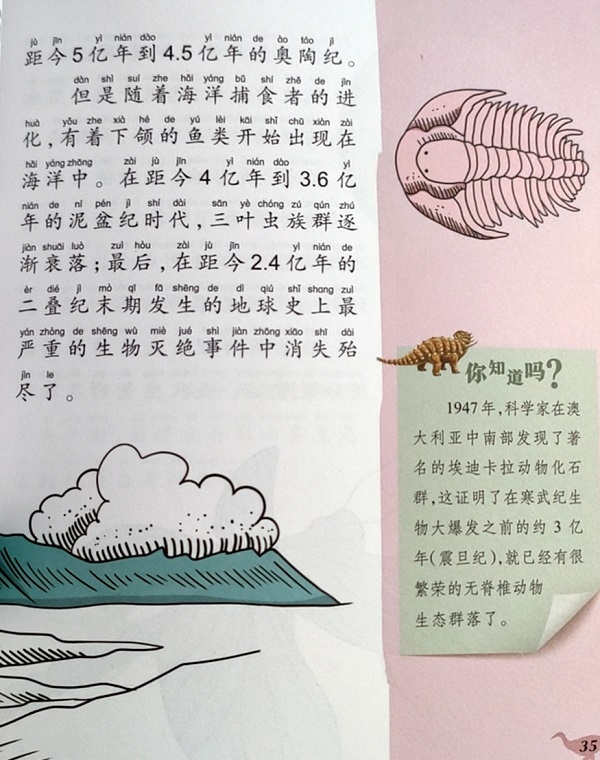 jù jīn yì nián dào yì nián de ào táo jì
距今5亿年到4.5亿年的奥陶纪。
dàn shì suí zhe hǎi yáng bǔ shí zhě de jìn
但是随着海洋捕食者的进
huà yǒu zhe xià hé de yú lèi kāi shǐ chū xiàn zài
化,有着下颌的鱼类开始出现在
hǎi yáng zhōng zài jù jīn yì nián dào yì
海洋中。在距今4亿年到3.6亿
nián de ní pén jì shí dài sān yè chóng zú qún zhú
年的泥盆纪时代,三叶虫族群逐
jiàn shuāi luò zuì hòu zài jù jīn yì nián de
渐衰落;最后,在距今2.4亿年的
èr dié jì mò qī fā shēng de dì qiú shǐ shang zuì
二叠纪末期发生的地球史上最
yán zhòng de shēng wù miè jué shì jiàn zhōng xiāo shī dài
严重的生物灭绝事件中消失殆
jìn le
尽了。
你知道吗?
1947年,科学家在澳
大利亚中南部发现了著
名的埃迪卡拉动物化石
群,这证明了在寒武纪生
物大爆发之前的约3亿
年(震旦纪),就已经有很
繁荣的无脊椎动物
生态群落了。
35